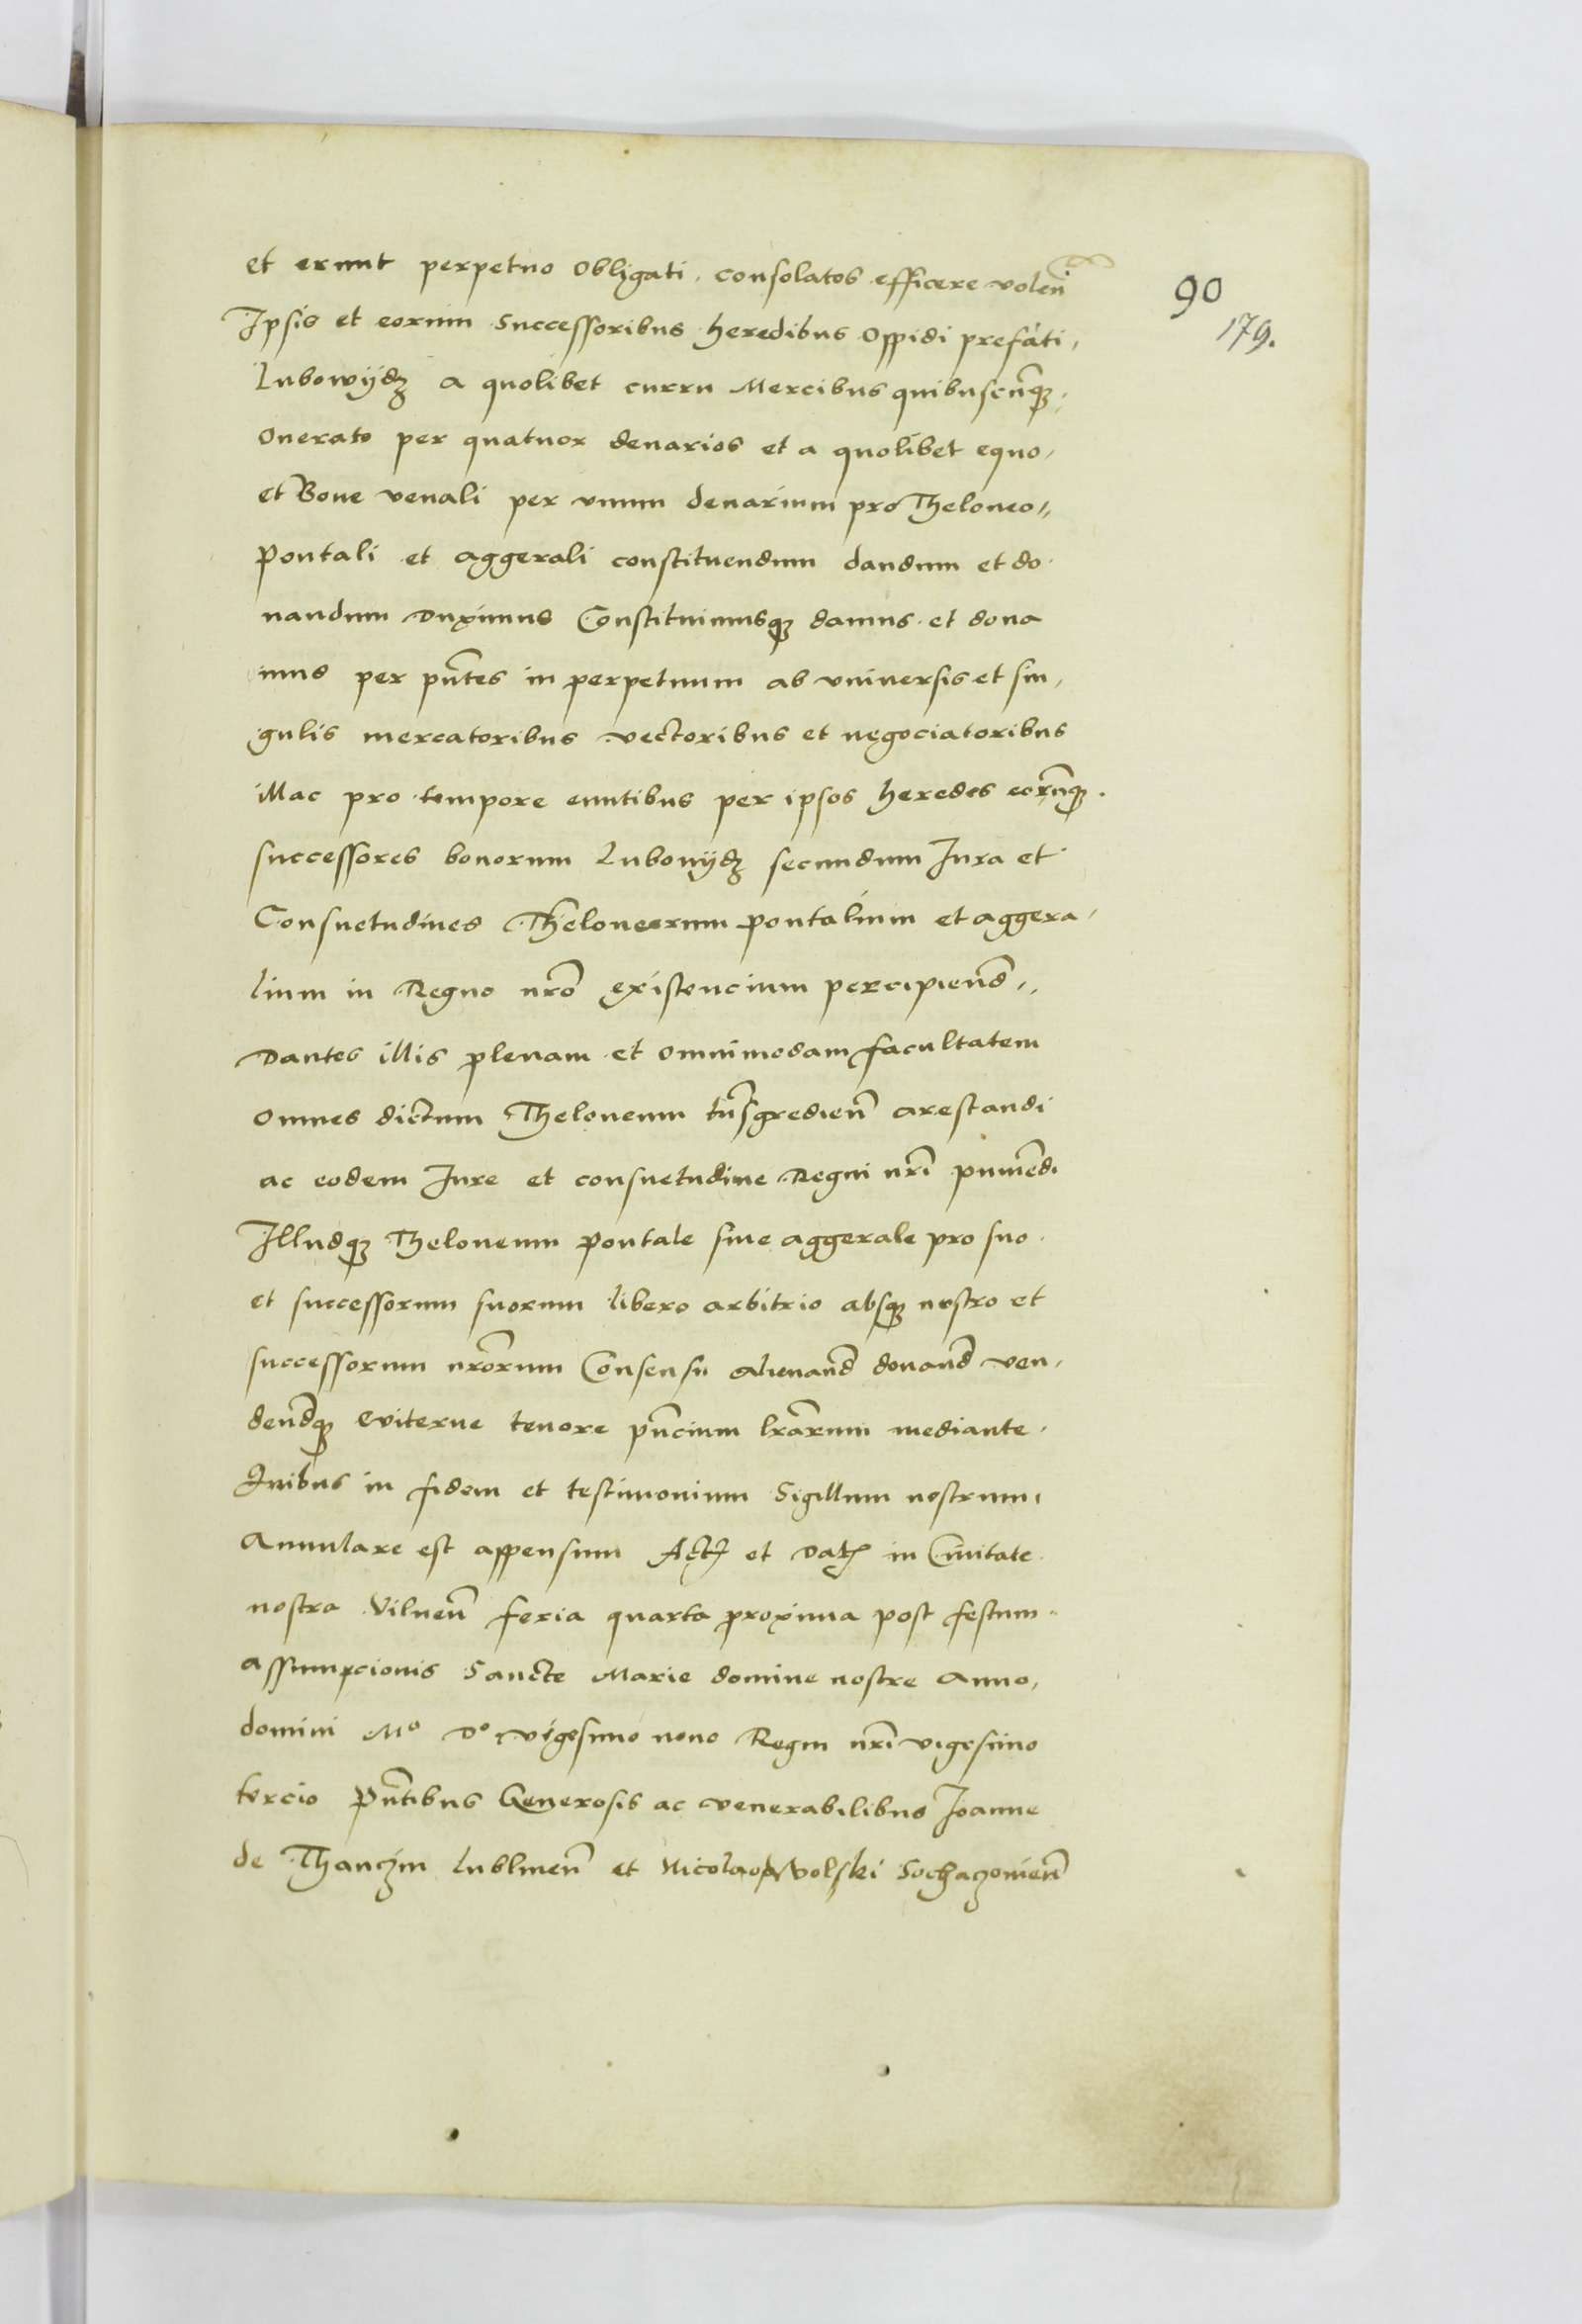 et erunt perpetuo Obligati. consolatos efficere volen̄
90
179.
Ipsis et eorum Successoribus heredibus Oppidi prefati,
Lubowijdz a quolibet curru Mercibus quibuscūqꝫ
Onerato per quatuor denarios et a quolibet equo,
et Boue venali per vnum denarium pro Theloneo,,
Pontali et aggerali constituendum dandum et do
nandum Duximus Constituimusqꝫ damus et dona
mus per pn̄tes in perpetuum ab vniuersis et sin,
gulis mercatoribus vectoribus et negociatoribus
illac pro tempore euntibus per ipsos heredes eorūqꝫ.
successores bonorum Lubouijdz secundum Iura et
Consuetudines Theloneorum pontalium et aggera,
lium in Regno nr̄o existencium percipiend̄,,
Dantes illis plenam et omnimodam facultatem
Omnes dictum Theloneum trn̄sgredien̄ arestandi
ac eodem Iure et consuetudine Regni nr̄i puniēdi
Illudqꝫ Theloneum pontale siue aggerale pro suo.
et successorum suorum libero arbitrio absqꝫ nostro et
successorum nr̄orum Consensu alienand̄ donand̄ ven,
dend̄qꝫ Eviterne tenore pn̄cium lr̄arum mediante.
Quibus in fidem et testimonium Sigillum nostrum,
Annulare est appensum Actꝫ et Datꝫ in Ciuitate
nostra Vilnen̄ feria quarta proxima post festum
assumpcionis Sancte Marie domine nostre Anno,
domini Mº Dº vigesimo nono Regni nr̄i vigesimo
tercio Pn̄tibus Generosis ac venerabilibus Joanne
de Thanczin Lublinen̄ et Nicolao Wolski Sochaczouien̄